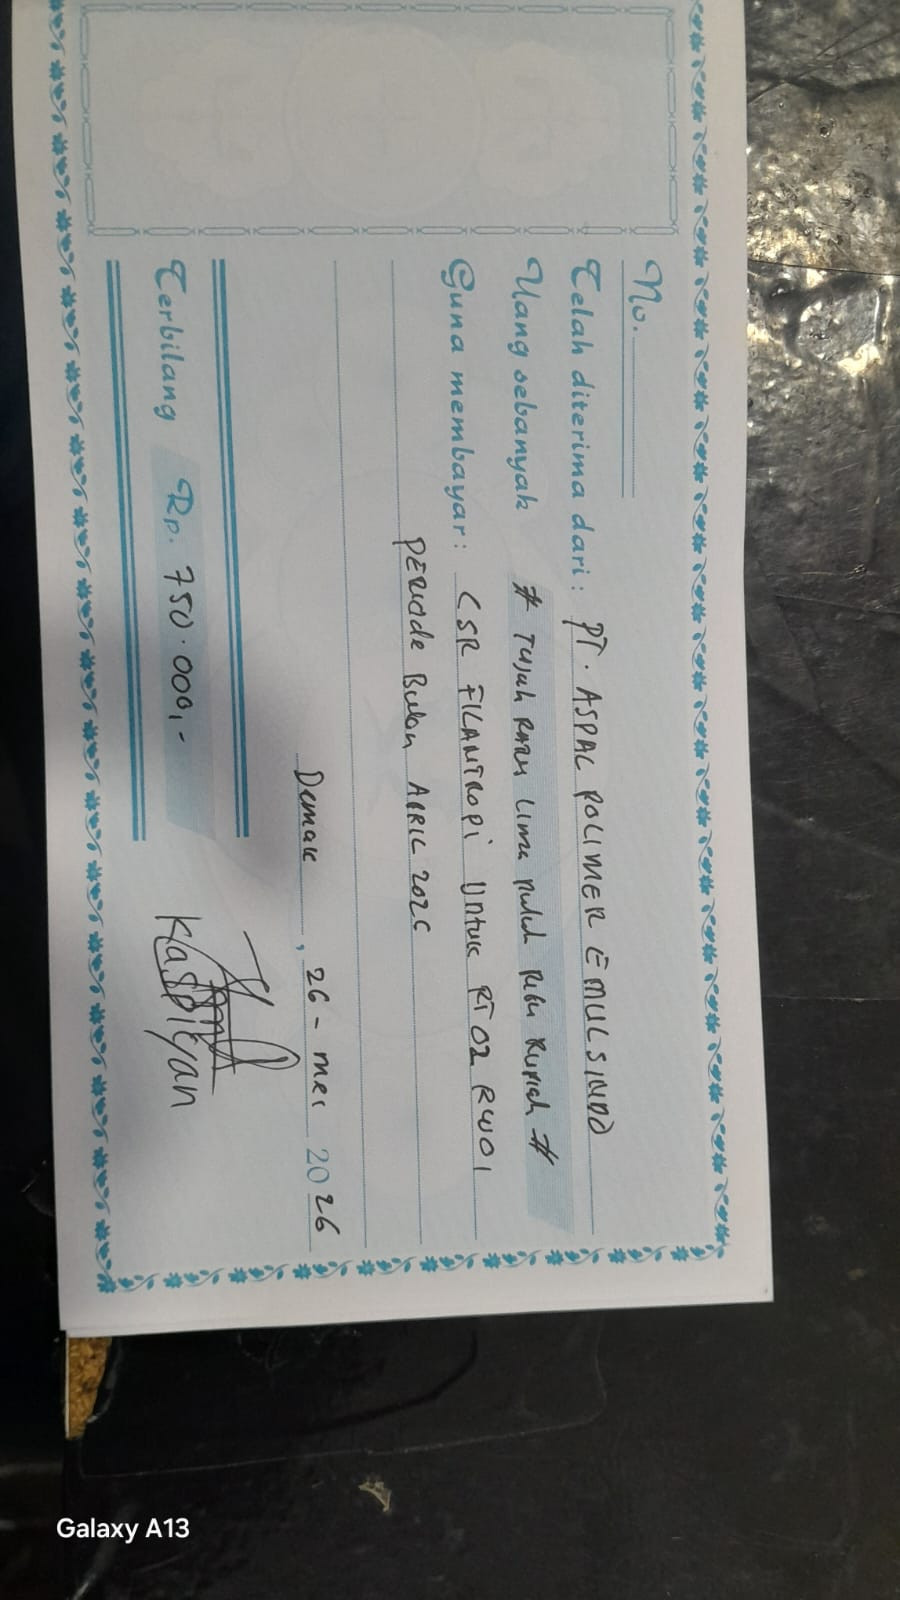 No.
Telah diterima dari : PT. ASPAL POLIMER EMULSINDO
Uang sebanyak # Tujuh RATU Lima puluh Ribu Rupiah #
Guna membayar : CSR FILANTROPI Untuk RT 02 RW 01
PERIODE Bulan APRIL 2026
Demak, 26 - mei 2026
Terbilang Rp. 750.000,-
Kaspiyan
Galaxy A13